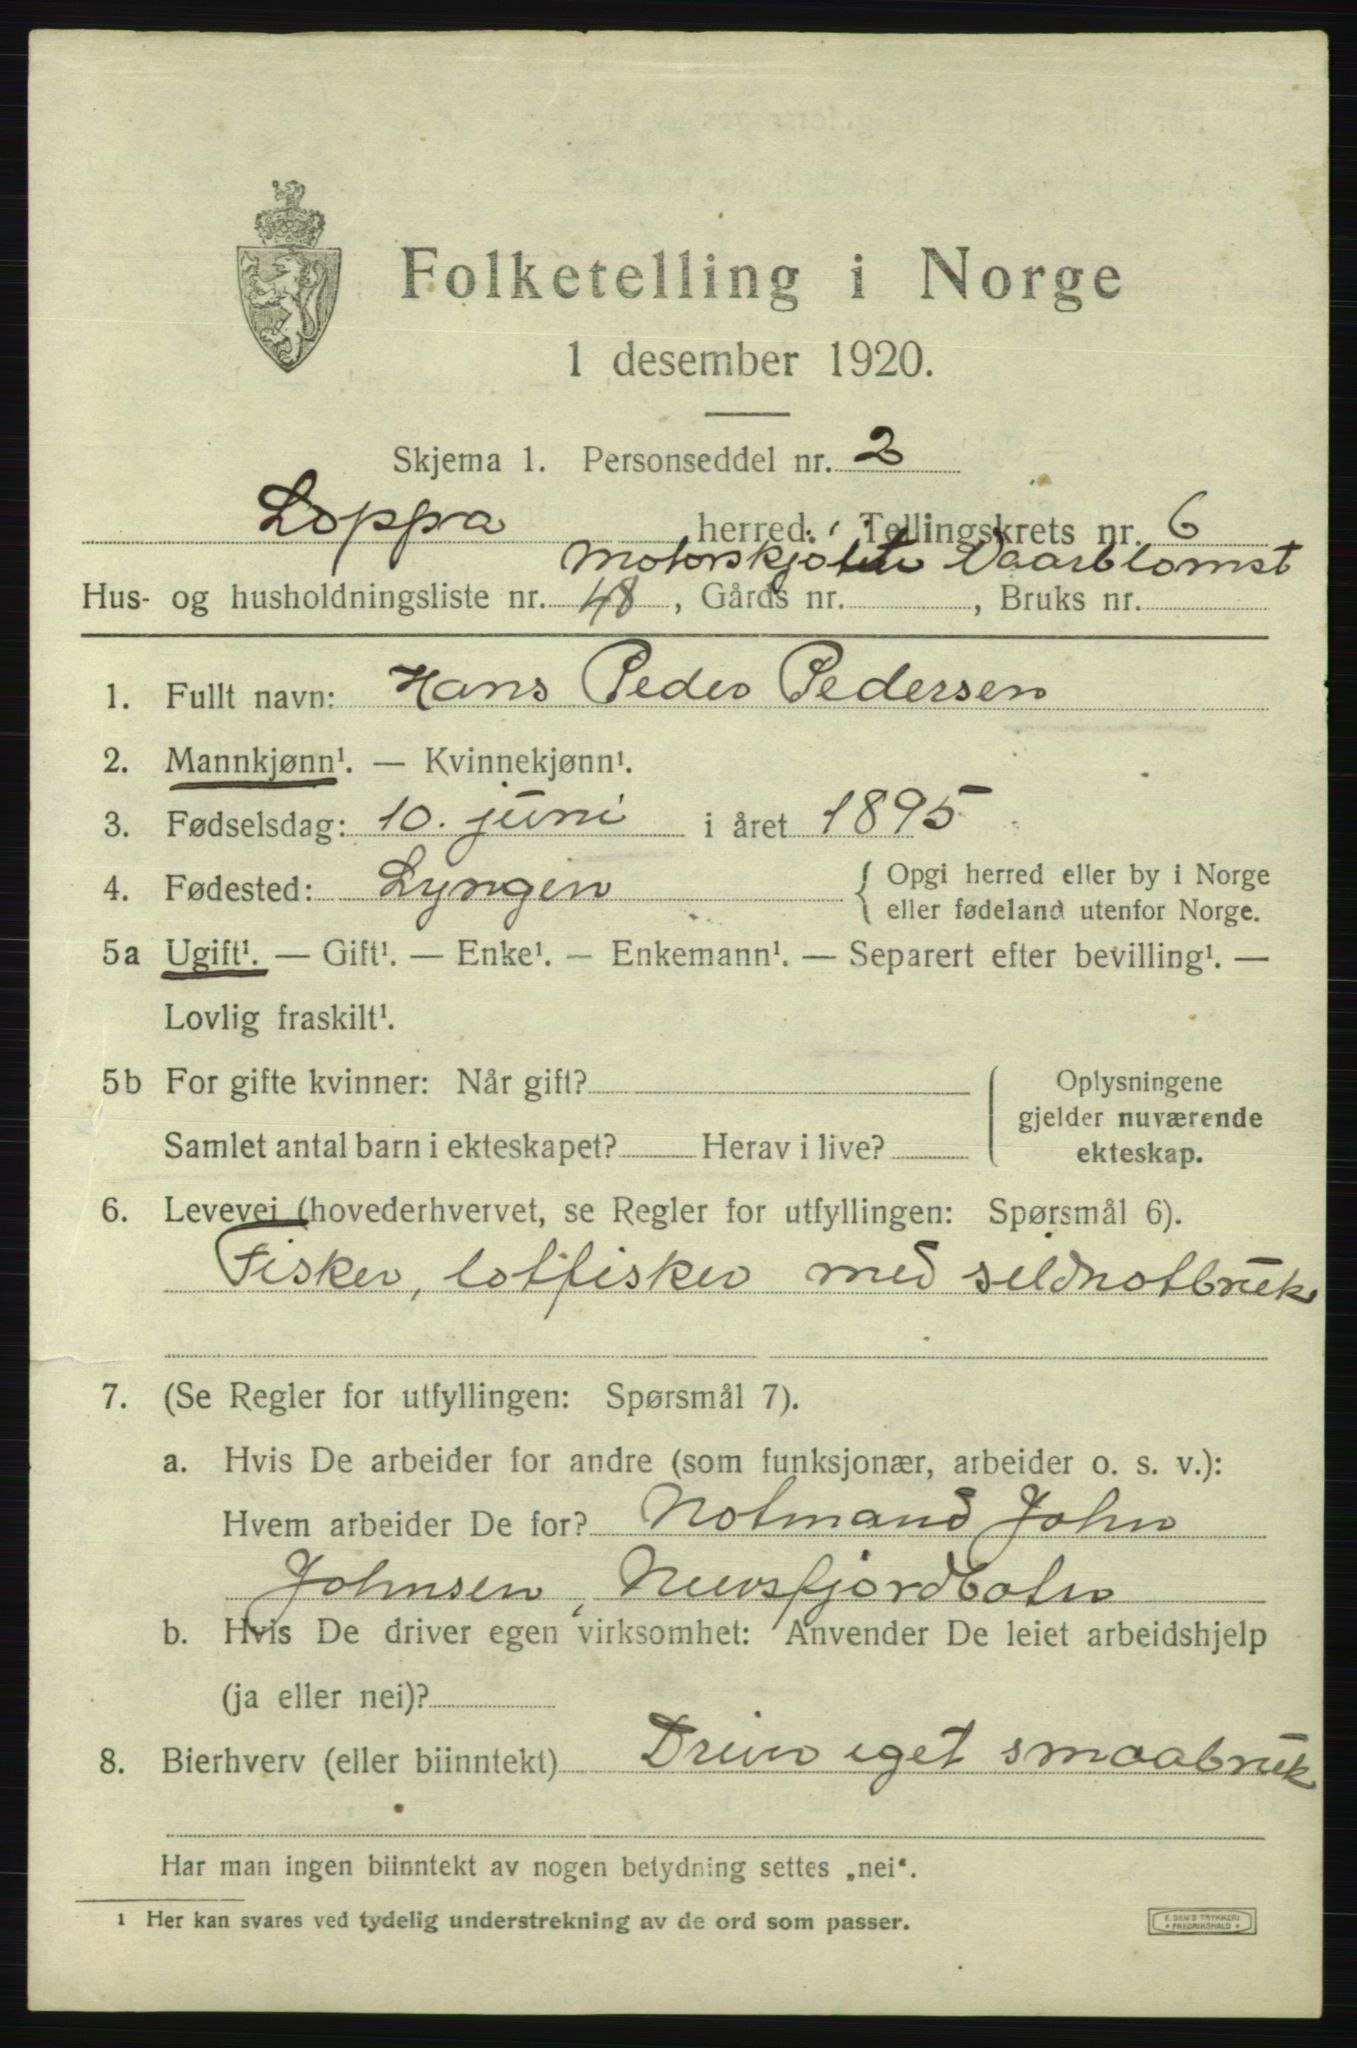 Folketelling i Norge
1 desember 1920.
Skjema 1. Personseddel nr. 2
Loppa herred. Tellingskrets nr. 6
Motorskjøite Vaarblomst
Hus- og husholdningsliste nr. 48, Gårds nr. , Bruks nr.
1. Fullt navn: Hans Peder Pedersen
2. Mannkjønn¹. — Kvinnekjønn¹.
3. Fødselsdag: 10. juni i året 1895
4. Fødested: Lyngen { Opgi herred eller by i Norge
eller fødeland utenfor Norge.
5a Ugift¹. — Gift¹. — Enke¹. — Enkemann¹. — Separert efter bevilling¹. —
Lovlig fraskilt¹.
5b For gifte kvinner: Når gift? Oplysningene
gjelder nuværende
Samlet antal barn i ekteskapet? Herav i live? ekteskap.
6. Levevei (hovederhvervet, se Regler for utfyllingen: Spørsmål 6).
Fisker, lotfisker med sildnotbruk
7. (Se Regler for utfyllingen: Spørsmål 7).
a. Hvis De arbeider for andre (som funksjonær, arbeider o. s. v.):
Hvem arbeider De for? Notmand John
Johnsen, fjordbotn
b. Hvis De driver egen virksomhet: Anvender De leiet arbeidshjelp
(ja eller nei)?
8. Bierhverv (eller biinntekt) Driver eget smaabruk
Har man ingen biinntekt av nogen betydning settes „nei“.
1 Her kan svares ved tydelig understrekning av de ord som passer.
E. SEM'S TRYKKERI
* FREDRIKSHALD *